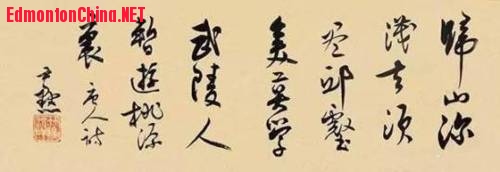 EdmontonChina.NET
歸山深
淺去須
盡邱壑
美莫學
武陵人
暫遊桃源
裏 唐人詩
尹默